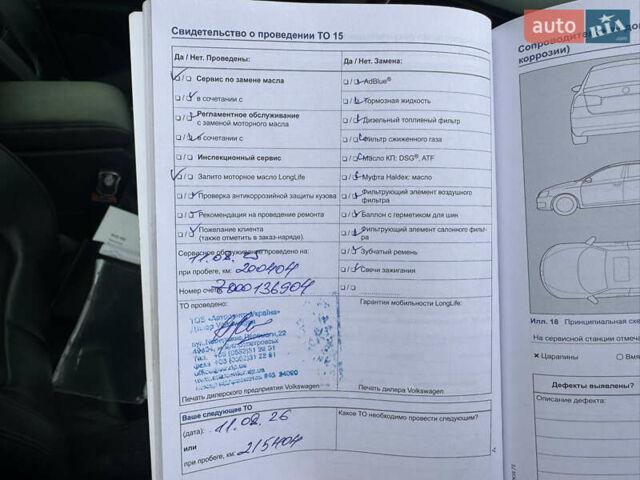 auto RIA
.com
Свидетельство о проведении ТО 15
Да / Нет. Проведены:
Да / Нет. Замена:
Сервис по замене масла
AdBlue®
в сочетании с
Тормозная жидкость
Регламентное обслуживание
с заменой моторного масла
Дизельный топливный фильтр
в сочетании с
Фильтр сжиженного газа
Инспекционный сервис
Масло КП: DSG®, ATF
Залито моторное масло LongLife
Муфта Haldex: масло
Проверка антикоррозийной защиты кузова
Фильтрующий элемент воздушного
фильтра
Рекомендация на проведение ремонта
Баллон с герметиком для шин
Пожелание клиента
(также отметить в заказ-наряде).
Фильтрующий элемент салонного фильт-
ра
Сервисное обслуживание проведено на:
Зубчатый ремень
при пробеге, км: 200404
Свечи зажигания
Номер 136904
ТО проведено:
Гарантия мобильности LongLife:
ТОВ
Печать дилерского предприятия Volkswagen
Печать дилера Volkswagen
Ваше следующее ТО
Какое ТО необходимо провести следующим?
(дата): 11.02.26
или
при пробеге, км: 215404
коррозии)
Илл. 16 Принципиальная схе
На сервисной станции отмеча
× Царапины
Вмя
Дефекты выявлены?
Описание дефекта: